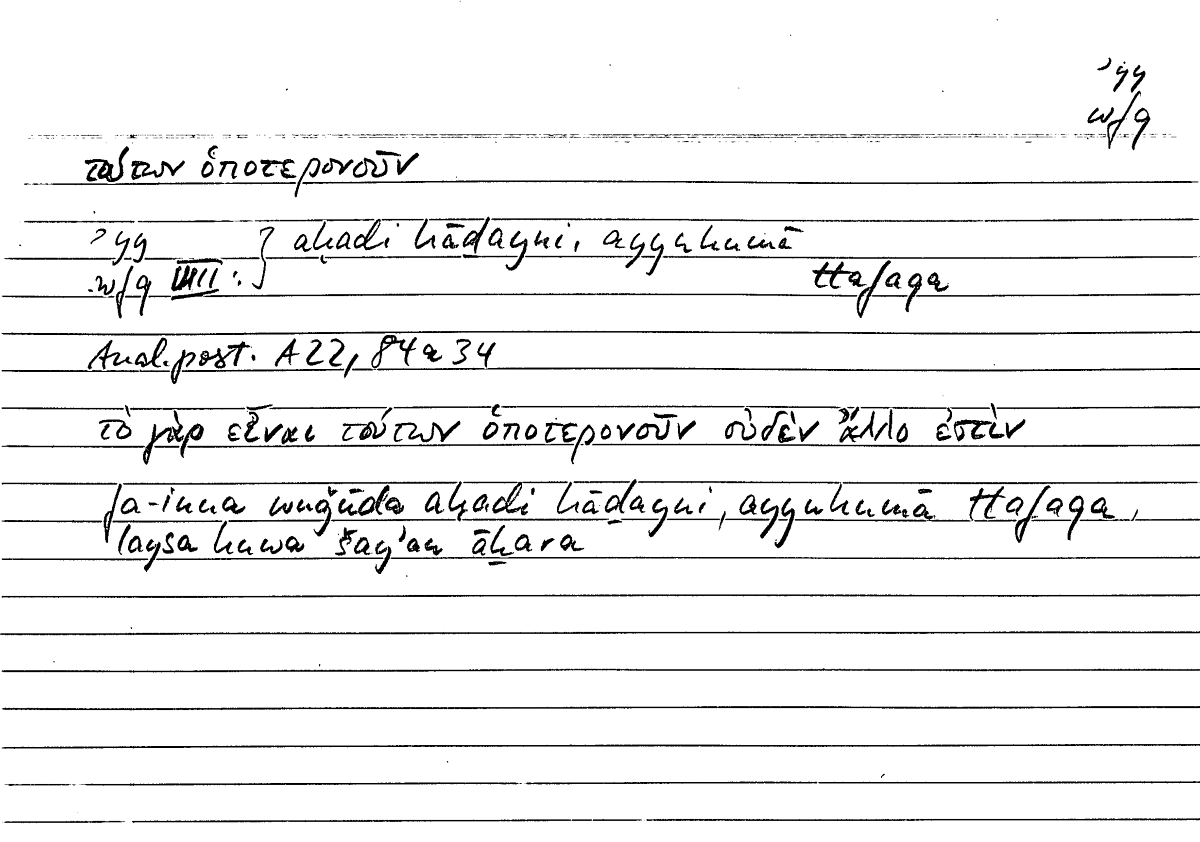 ʾyy
wfq
τούτων ὁποτερονοῦν
ʾyy
wfq VIII : } aḥadi hāḏayni, ayyuhumā
ttafaqa
Anal. post. A 22, 84 a 34
τὸ γὰρ εἶναι τούτων ὁποτερονοῦν οὐδὲν ἄλλο ἐστὶν
fa-inna wuǧūda aḥadi hāḏayni, ayyuhumā ttafaqa,
laysa huwa šayʾan āḫara